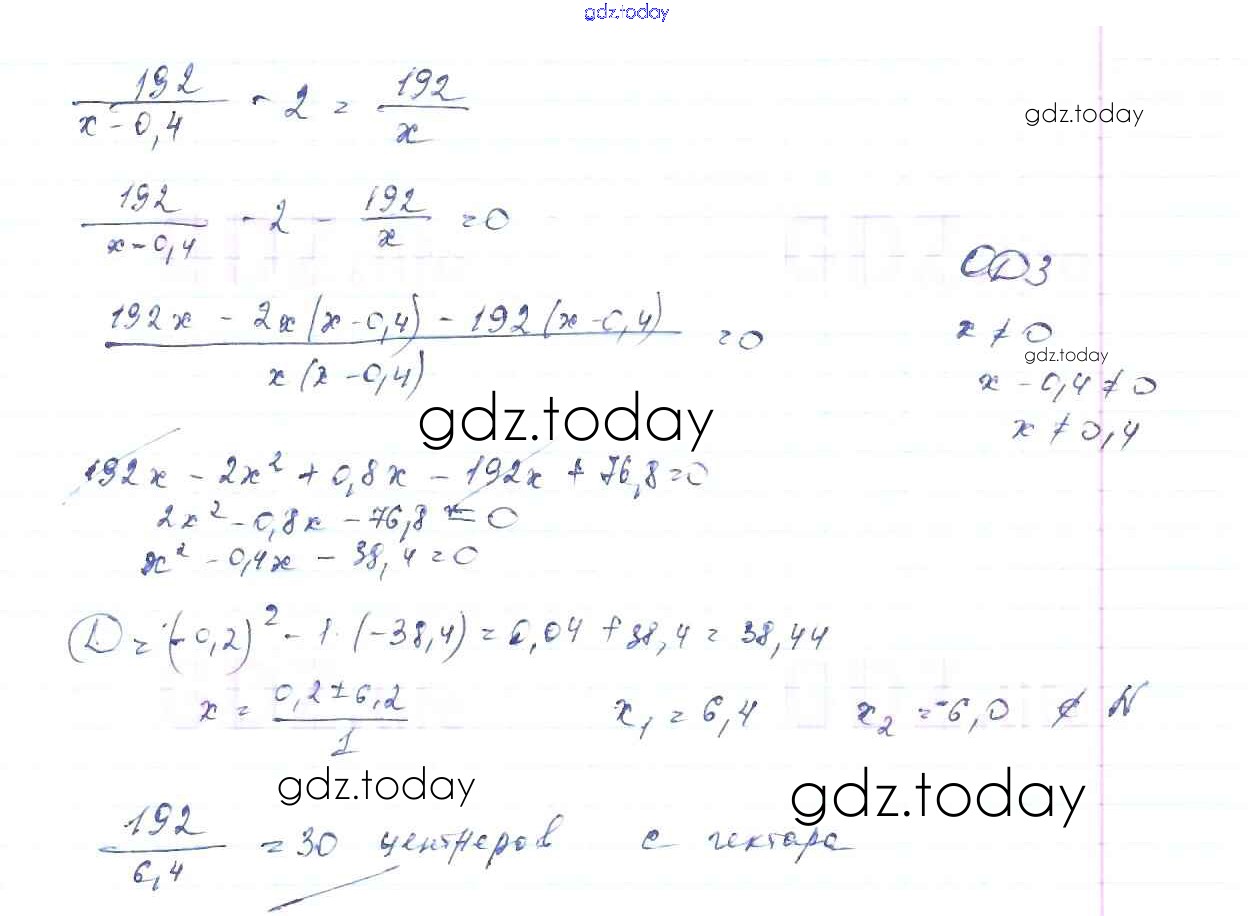 gdz.today
192/(x-0,4) - 2 = 192/x
gdz.today
192/(x-0,4) - 2 - 192/x = 0
ОДЗ
(192x - 2x(x-0,4) - 192(x-0,4))/(x(x-0,4)) = 0
x ≠ 0
gdz.today
x - 0,4 ≠ 0
x ≠ 0,4
gdz.today
192x - 2x² + 0,8x - 192x + 76,8 = 0
2x² - 0,8x - 76,8 = 0
x² - 0,4x - 38,4 = 0
D = (-0,2)² - 1·(-38,4) = 0,04 + 38,4 = 38,44
x = (0,2 ± 6,2)/1 x₁ = 6,4 x₂ = -6,0 ∉ N
gdz.today
gdz.today
192/6,4 = 30 центнеров с гектара